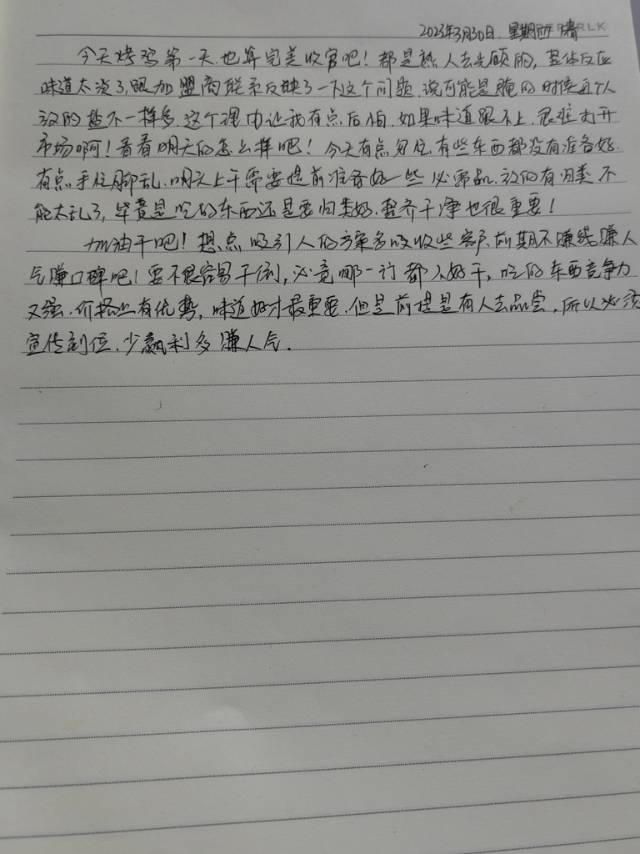 2023年3月30日. 星期四 晴
RLK
今天烤鸡第一天也算完美收官吧！都是熟人去光顾的，整体反应
味道太淡了，跟加盟商联系反映了一下这个问题，说可能是腌的时候每个人
放的盐不一样多，这个理由让我有点后怕，如果味道跟不上，很难打开
市场啊！看看明天的怎么样吧！今天有点匆忙有些东西都没有准备好.
有点手忙脚乱，明天上午需要提前准备好一些必需品，放的有归类不
能太乱了，毕竟是吃的东西还是要归类好，整齐干净也很重要！
加油干吧！想点吸引人的方案多吸收些客户，前期不赚钱赚人
气赚口碑吧！要不很容易干倒，必竟哪一行都不好干，吃的东西竞争力
又强，价格上有优势，味道好才最重要，但是前提是有人去品尝，所以必须
宣传到位，少赢利多赚人气.